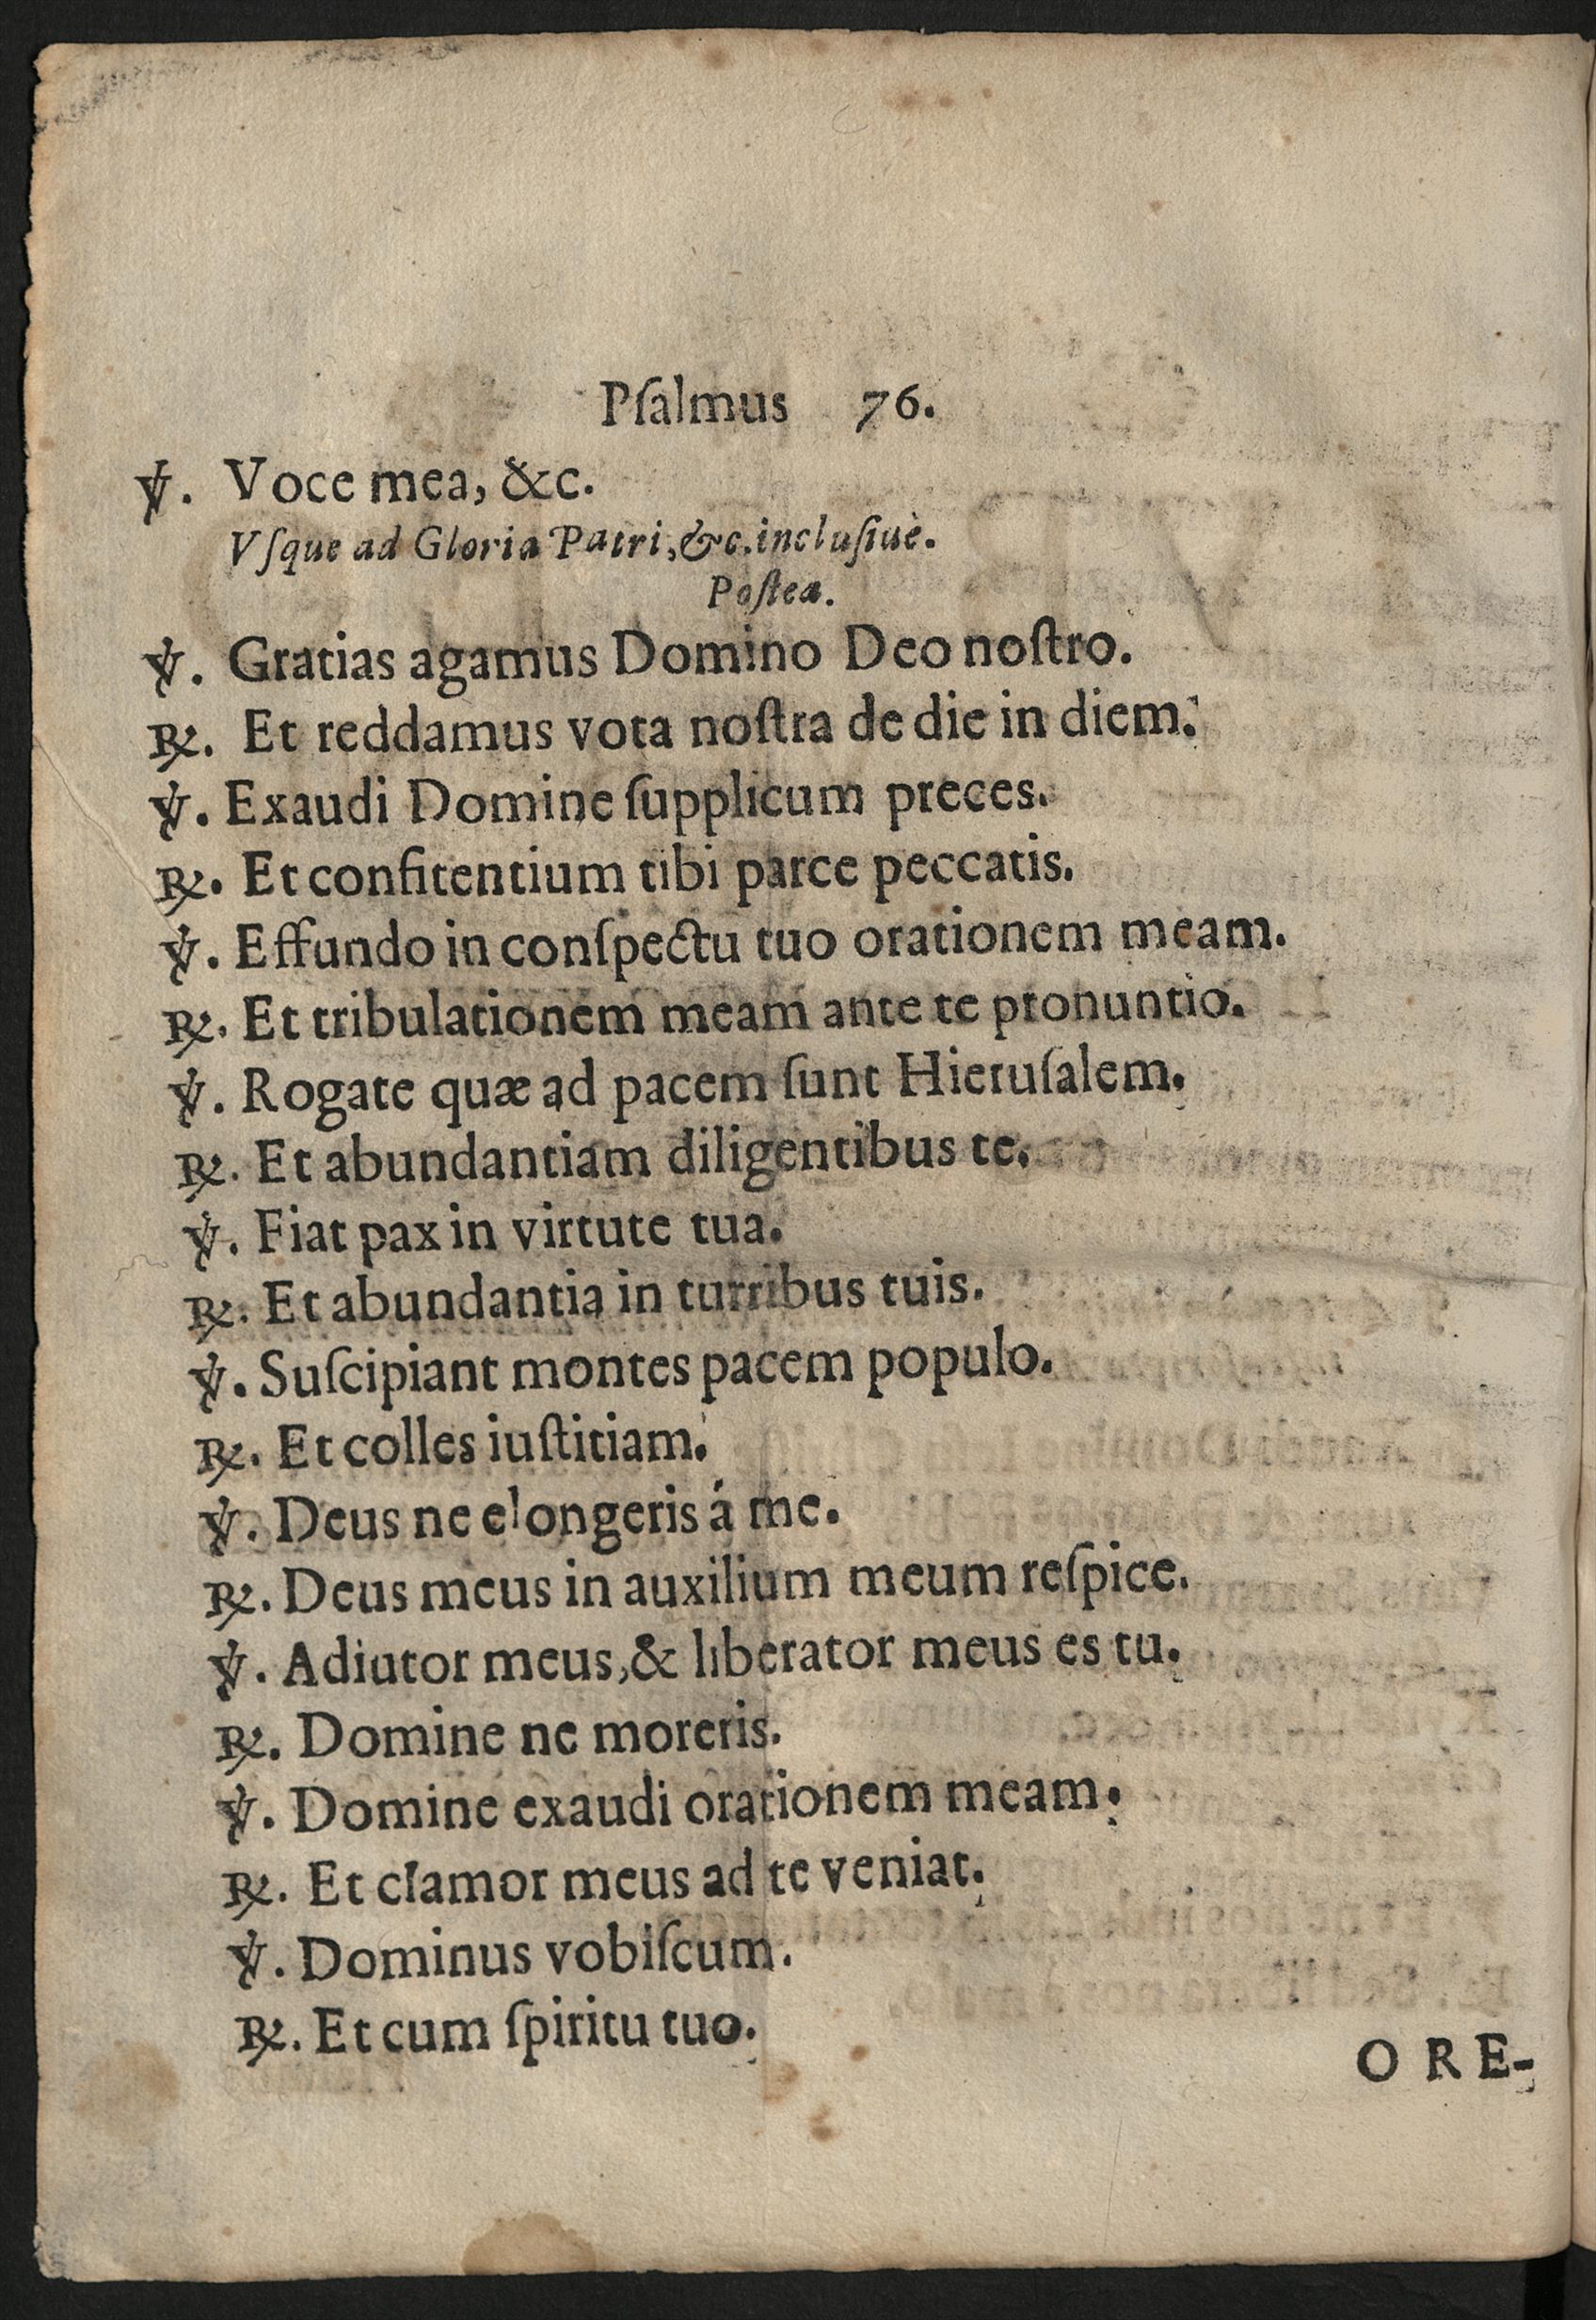 Pſalmus 76.
℣. Voce mea, &c.
Vſque ad Gloria Patri, &c. incluſiuè.
Poſtea.
℣. Gratias agamus Domino Deo noſtro.
℟. Et reddamus vota noſtra de die in diem.
℣. Exaudi Domine ſupplicum preces.
℟. Et confitentium tibi parce peccatis.
℣. Effundo in conſpectu tuo orationem meam.
℟. Et tribulationem meam ante te pronuntio.
℣. Rogate quæ ad pacem ſunt Hieruſalem.
℟. Et abundantiam diligentibus te.
℣. Fiat pax in virtute tua.
℟. Et abundantia in turribus tuis.
℣. Suſcipiant montes pacem populo.
℟. Et colles iuſtitiam.
℣. Deus ne elongeris á me.
℟. Deus meus in auxilium meum reſpice.
℣. Adiutor meus, & liberator meus es tu.
℟. Domine ne moreris.
℣. Domine exaudi orationem meam.
℟. Et clamor meus ad te veniat.
℣. Dominus vobiſcum.
℟. Et cum ſpiritu tuo.
ORE-